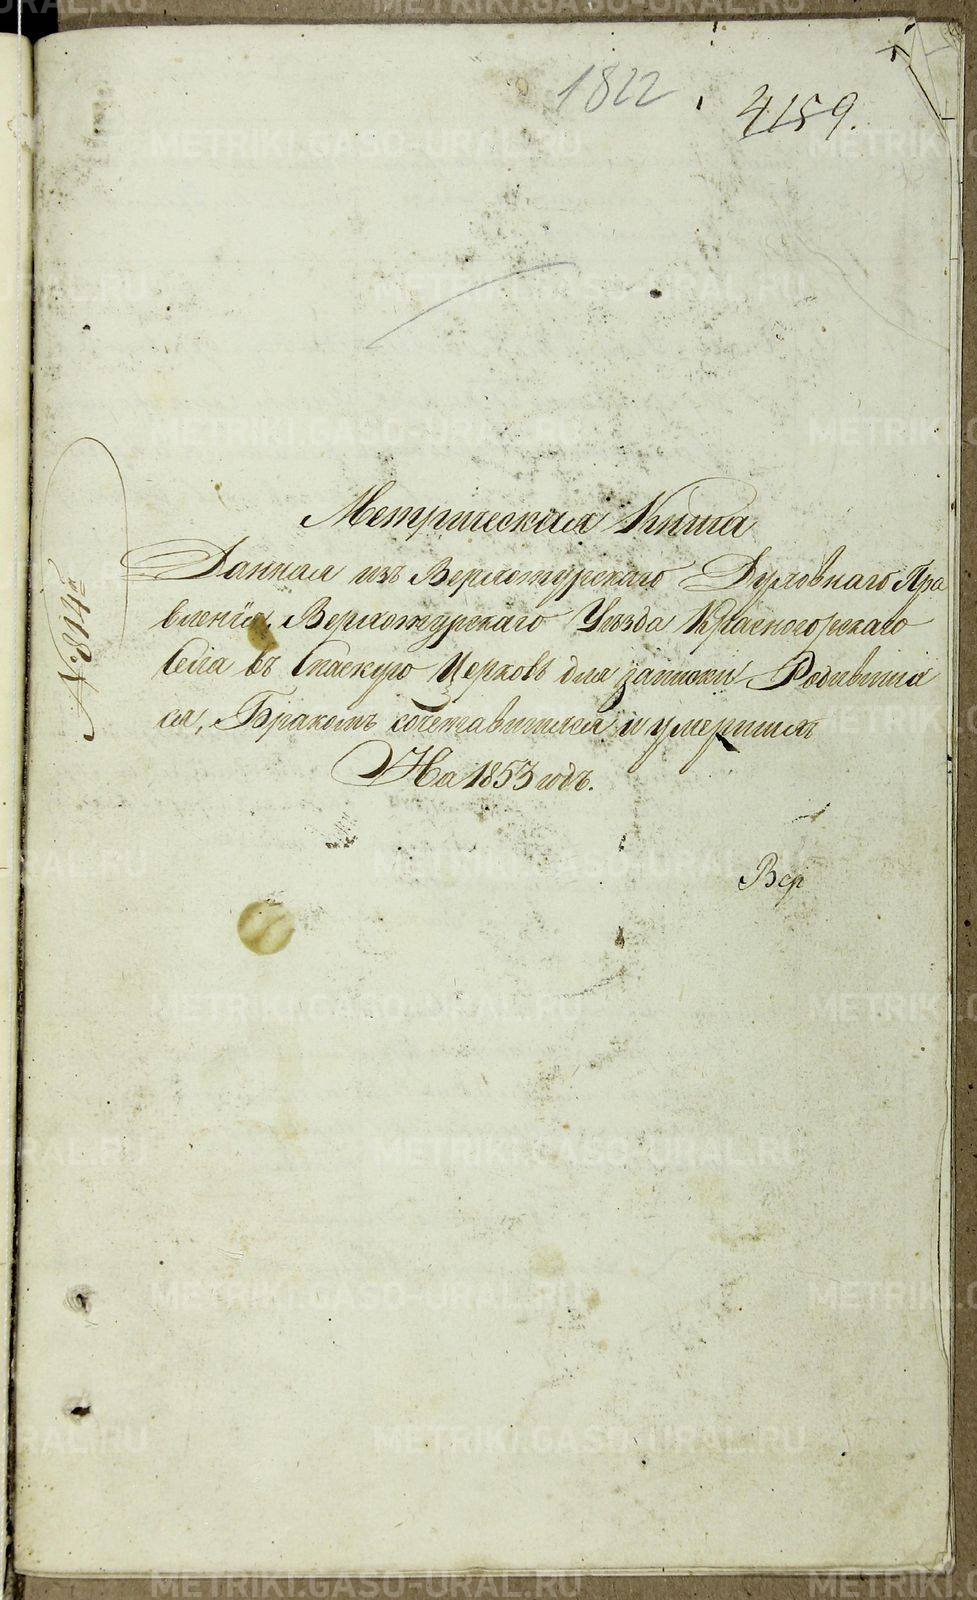 1822
4159.
Метрическая Книга
Данная изъ Верхотурскаго Духовнаго Пра
вленія, Верхотурскаго Уѣзда Красногорскаго
Села въ Спаскую Церковь для записки Родивших
ся, Бракомъ сочетавшихся и умершихъ
На 1853 годъ.
Вер
METRIKI.GASO-URAL.RU